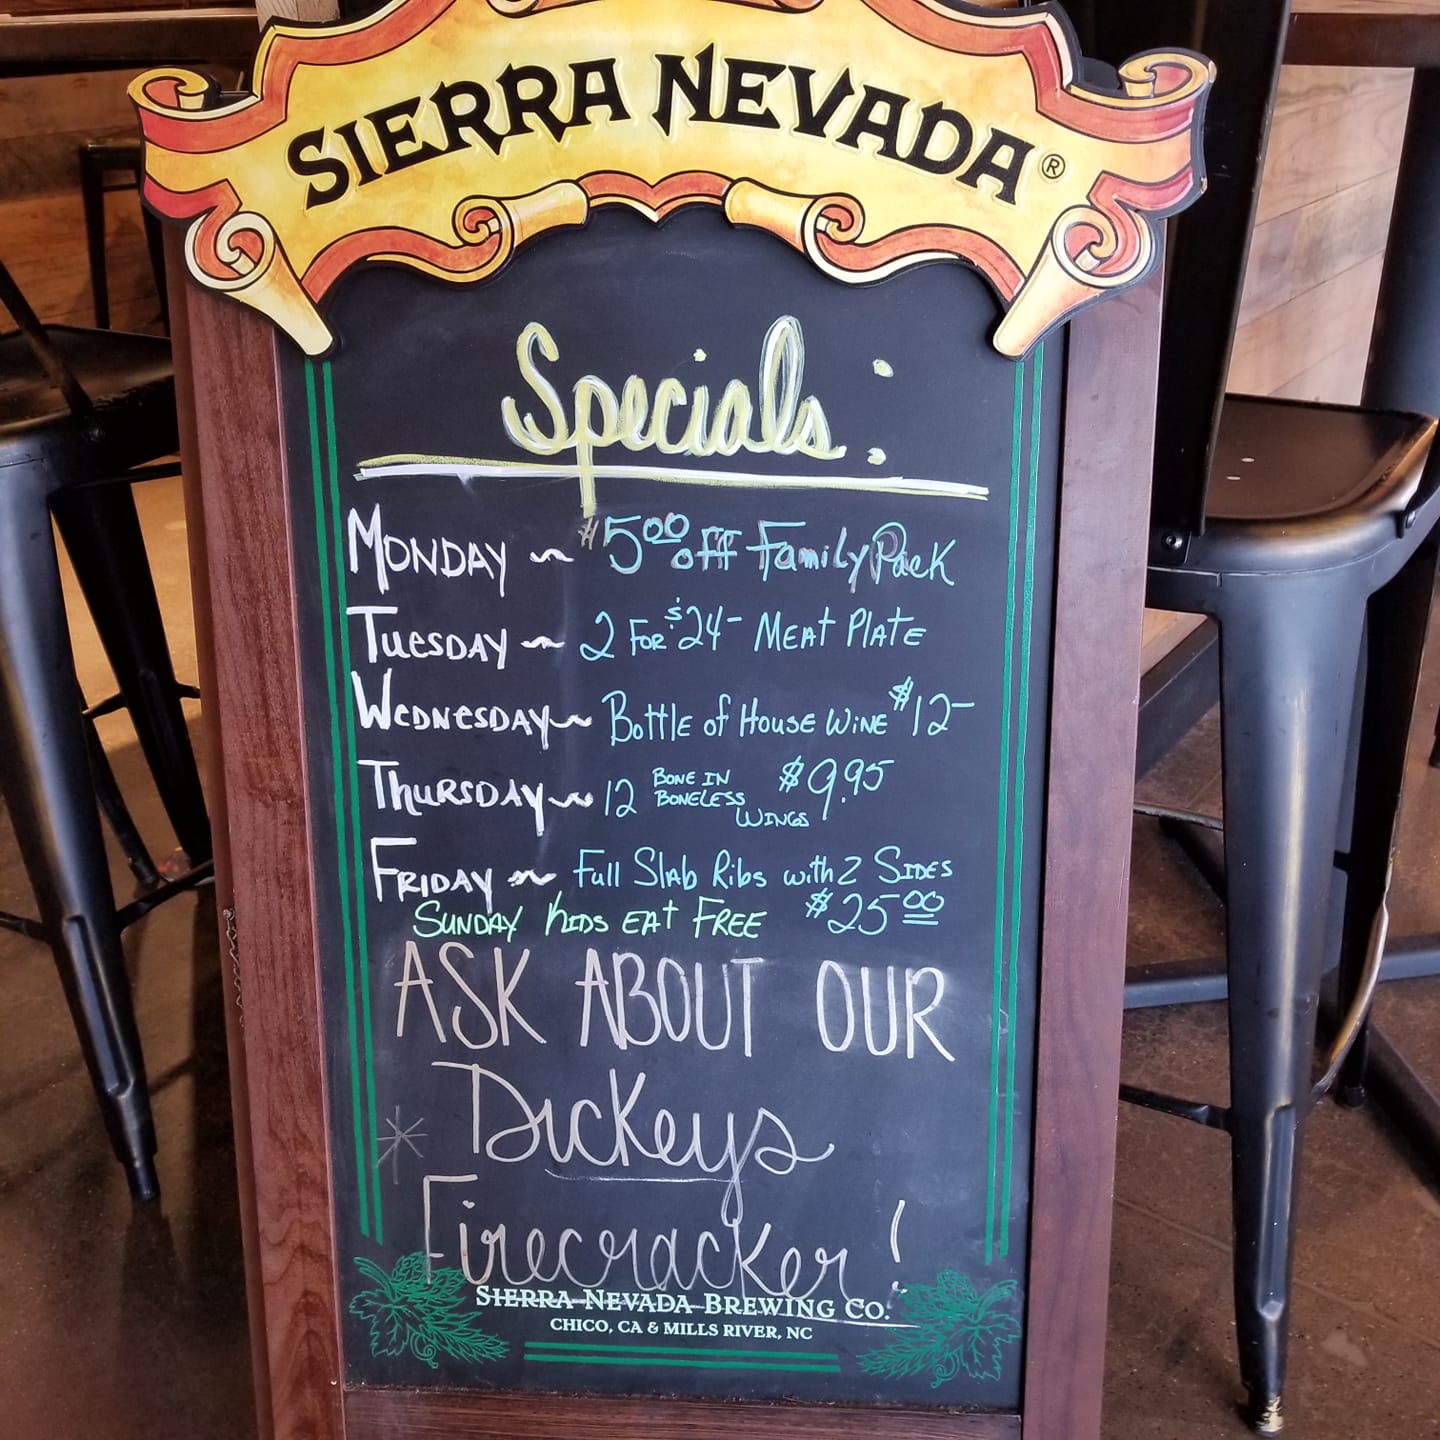 SIERRA NEVADA®
Specials:
MONDAY ~ $5.00 off Family Pack
TUESDAY ~ 2 FOR $24- MEAT PLATE
WEDNESDAY ~ Bottle of House WINE $12-
THURSDAY ~ 12 BONE IN BONELESS WINGS $9.95
FRIDAY ~ Full Slab Ribs with 2 SIDES
SUNDAY KIDS EAT FREE $25.00
ASK ABOUT OUR
* Dickeys
Firecracker!
SIERRA NEVADA BREWING CO.
CHICO, CA & MILLS RIVER, NC